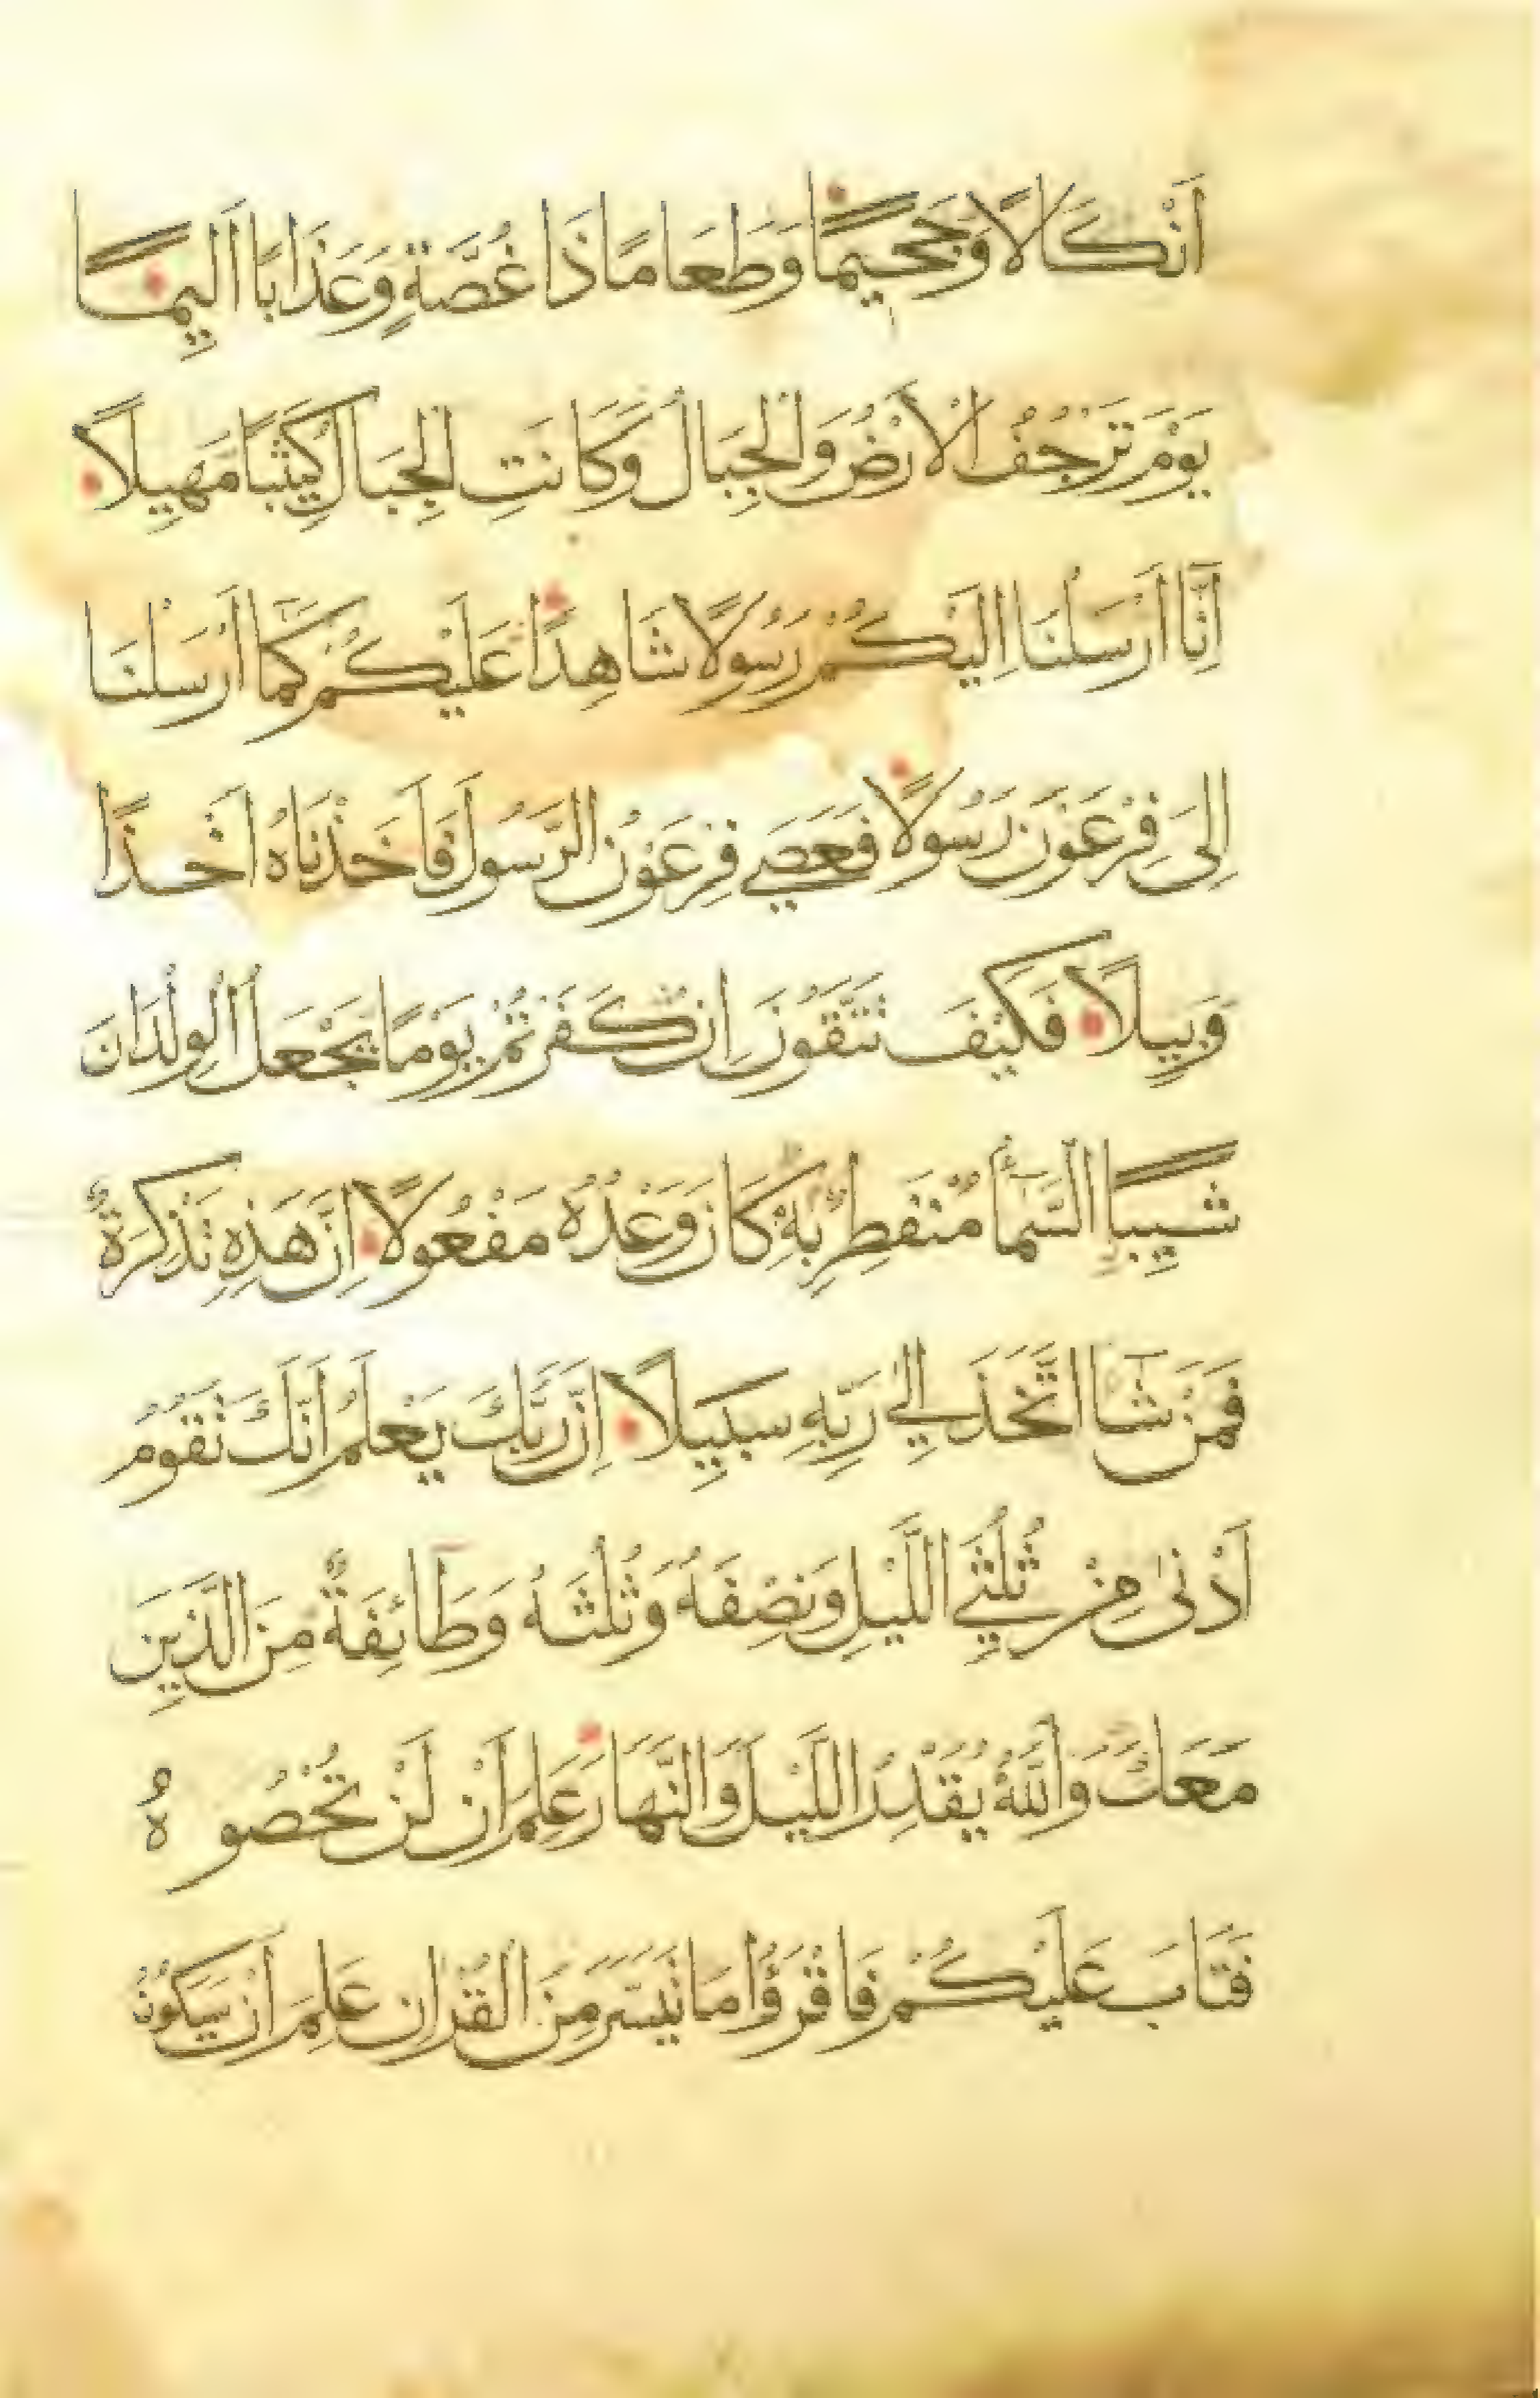 اَنْكَالًا وَجَحِيمًا وَطَعَامًا ذَا غُصَّةٍ وَعَذَابًا اَلِيمًا
يَوْمَ تَرْجُفُ الْاَرْضُ وَالْجِبَالُ وَكَانَتِ الْجِبَالُ كَثِيبًا مَهِيلًا
اِنَّا اَرْسَلْنَا اِلَيْكُمْ رَسُولًا شَاهِدًا عَلَيْكُمْ كَمَا اَرْسَلْنَا
اِلَى فِرْعَوْنَ رَسُولًا فَعَصَي فِرْعَوْنُ الرَّسُولَ فَاَخَذْنَاهُ اَخْذًا
وَبِيلًا فَكَيْفَ تَتَّقُونَ اِنْ كَفَرْتُمْ يَوْمًا يَجْعَلُ الْوِلْدَانَ
شِيبًا السَّمَآءُ مُنْفَطِرٌ بِهِ كَانَ وَعْدُهُ مَفْعُولًا اِنَّ هَذِهِ تَذْكِرَةٌ
فَمَنْ شَآ اتَّخَذَ اِلَي رَبِّهِ سَبِيلًا اِنَّ رَبَّكَ يَعْلَمُ اَنَّكَ تَقُومُ
اَدْنَى مِنْ ثُلُثَيِ اللَّيْلِ وَنِصْفَهُ وَثُلُثَهُ وَطَآئِفَةٌ مِنَ الَّذِينَ
مَعَكَ وَاللَّهُ يُقَدِّرُ اللَّيْلَ وَالنَّهَارَ عَلِمَ اَنْ لَنْ تُحْصُوهُ
فَتَابَ عَلَيْكُمْ فَاقْرَؤُا مَا تَيَسَّرَ مِنَ الْقُرْاٰنِ عَلِمَ اَنْ سَيَكُونُ